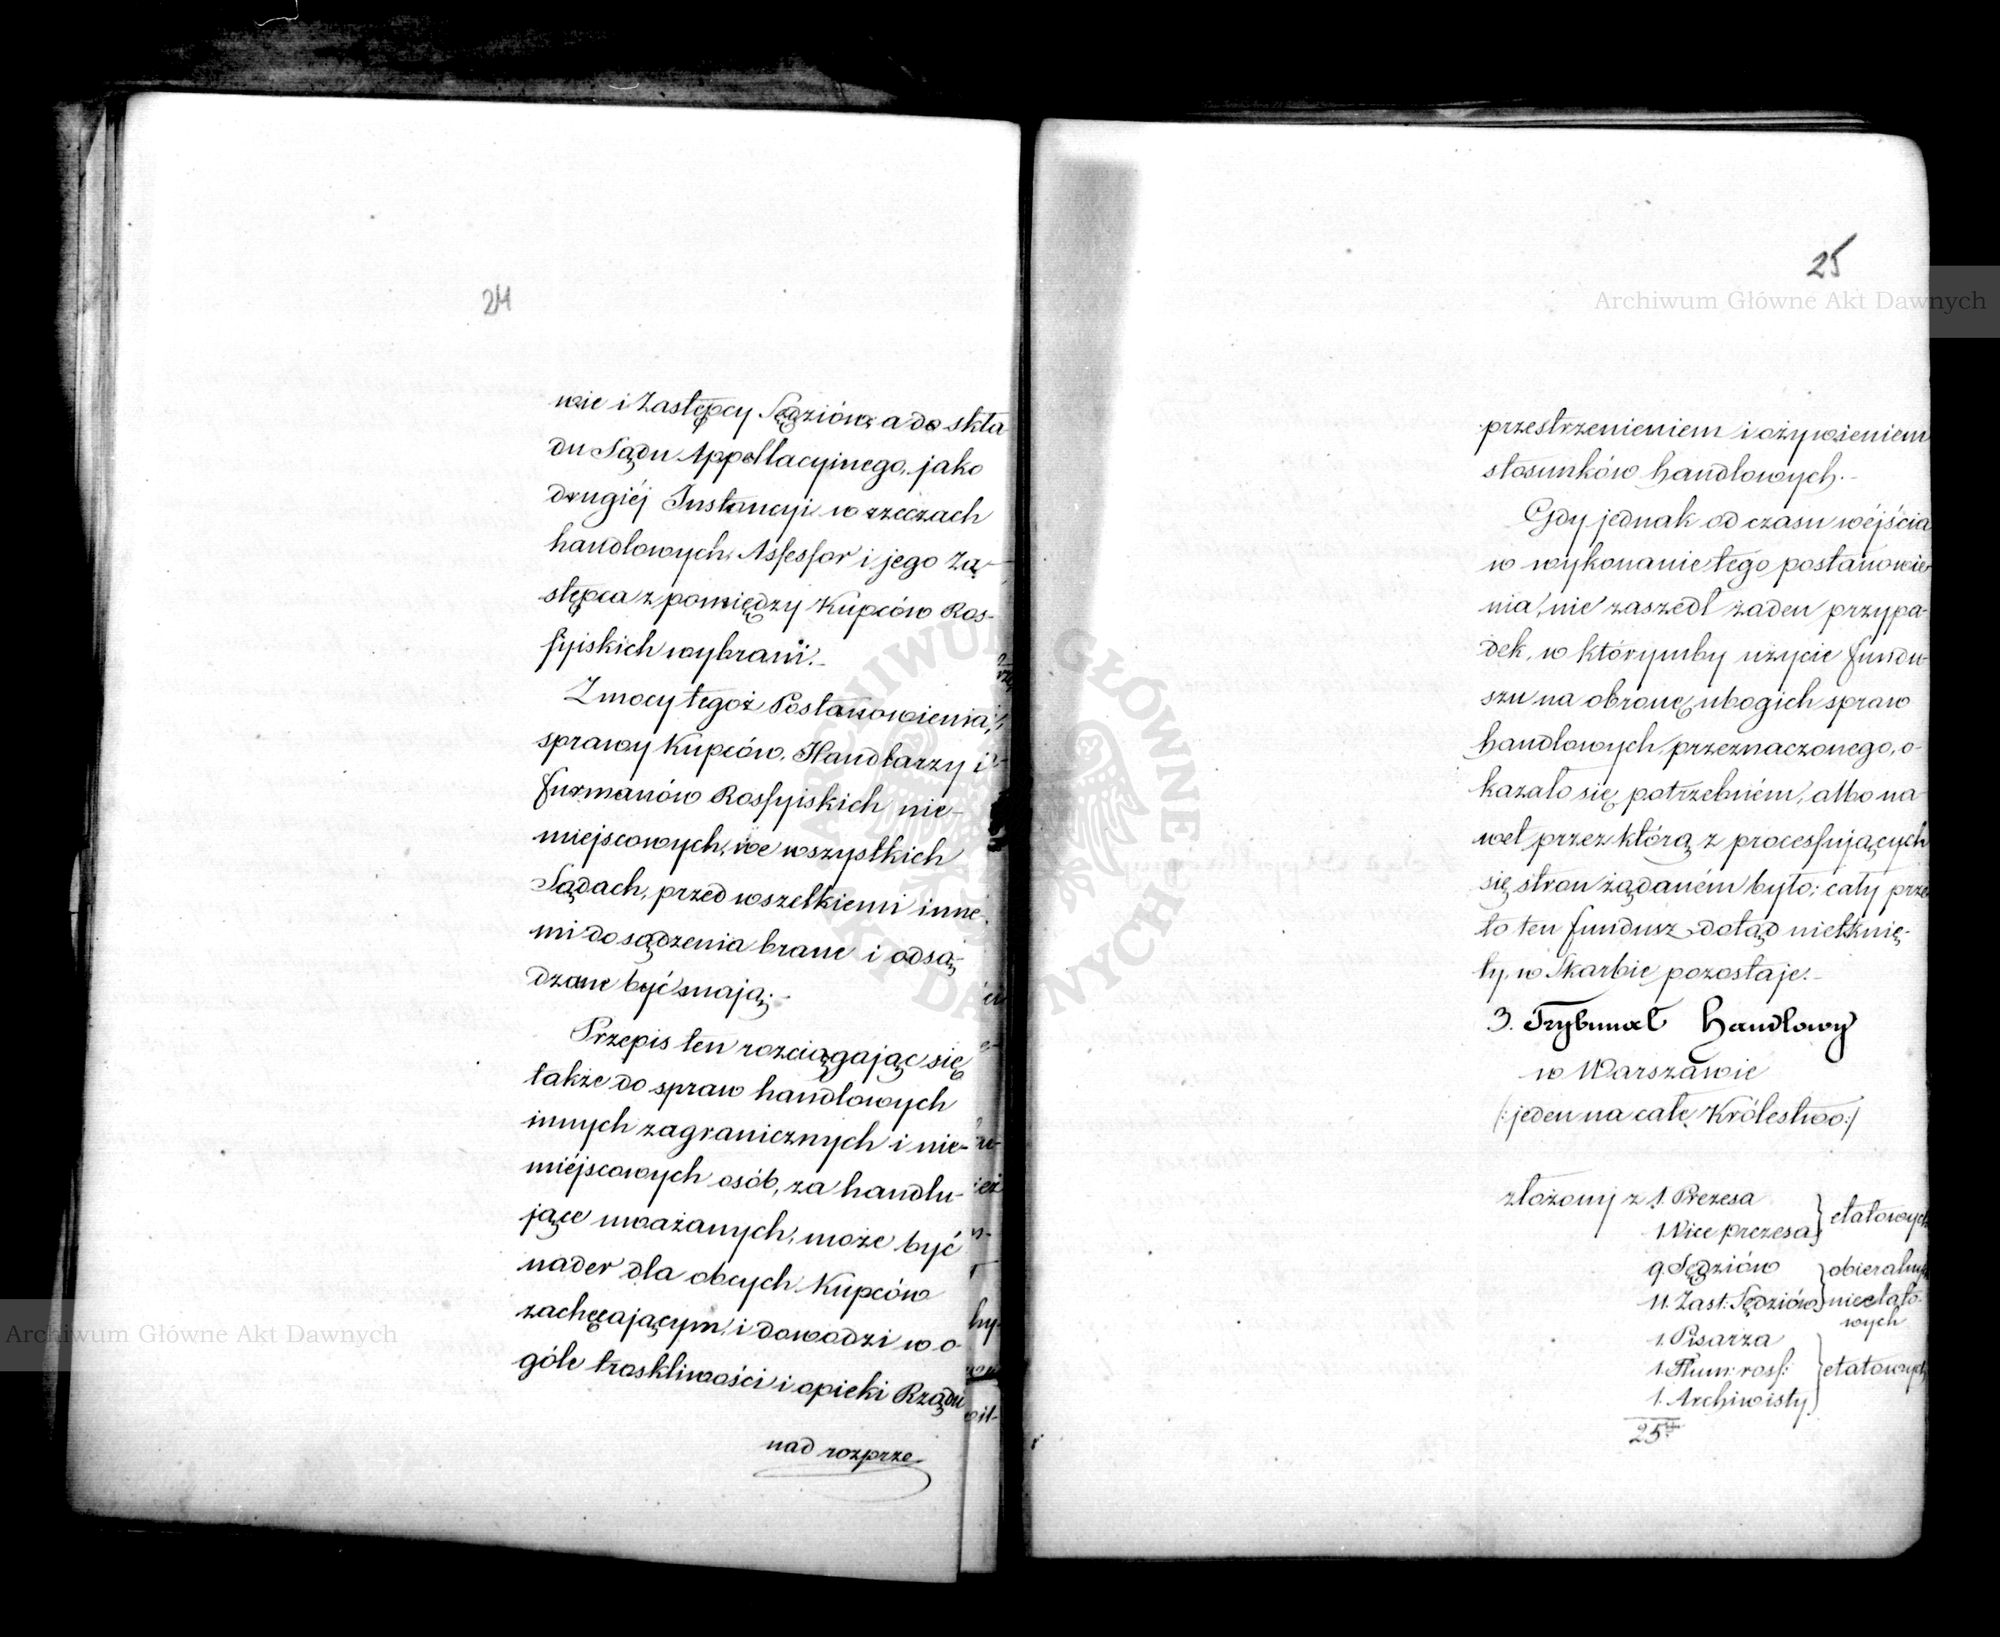 24
wie i Zastępcy Sędziów, a do skła
du Sądu Appellacyjnego, jako
drugiéj Instancyi w rzeczach
handlowych, Assessor i jego Za-
stępca z pomiędzy Kupców Ros-
syiskich wybrani.-
Z mocy tegoż Postanowienia,
sprawy Kupców, Handlarzy i
furmanów Rossyiskich nie-
miejscowych, we wszystkich
Sądach, przed wszelkiemi inne-
mi do sądzenia brane i odsą-
dzane być mają.-
Przepis ten rozciągając się
także do spraw handlowych
innych zagranicznych i nie-
miéjscowych osób, za handlu-
jące uważanych, może być
nader dla obcych Kupców
zachęcającym, i dowodzi w o-
góle troskliwości i opieki Rządu
nad rozprze
25
przestrzenieniem i ożywieniem
stosunków handlowych.-
Gdy jednak od czasu wéjścia
w wykonanie tego postanowie-
nia, nie zaszedł żaden przypa-
dek, w którymby użycie fundu-
szu na obronę ubogich spraw
handlowych przeznaczonego, o-
kazało się potrzebném, albo na-
wet przez którą z processujących
się stron żądaném było; cały prze
to ten fundusz dotąd nietknię-
ty, w Skarbie pozostaje.-
3. Trybunał Handlowy
w Warszawie
/:jeden na całe Królestwo:/
złożony z 1. Prezesa
1. Vice prezesa } etatowych
9. Sędziów } obieralnych
11. Zast: Sędziów } nieetato-
wych
1. Pisarza
1. Tłum: ross: } etatowych
1. Archiwisty
25
Archiwum Główne Akt Dawnych
Archiwum Główne Akt Dawnych
ARCHIWUM GŁÓWNE AKT DAWNYCH